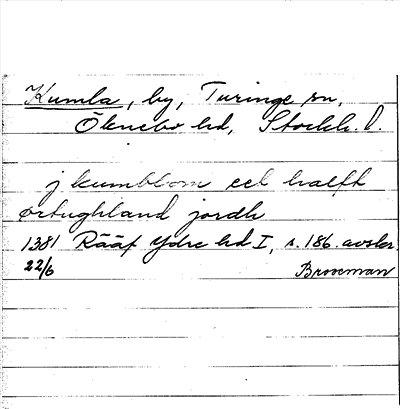 Kumla, by, Turinge sn,
Öknebo hd, Stockh. l.
j kumblom eet halfft
ørtughland jordh
1381 Rääf Ydre hd I, s. 186. avskr.
22/6 Brocman